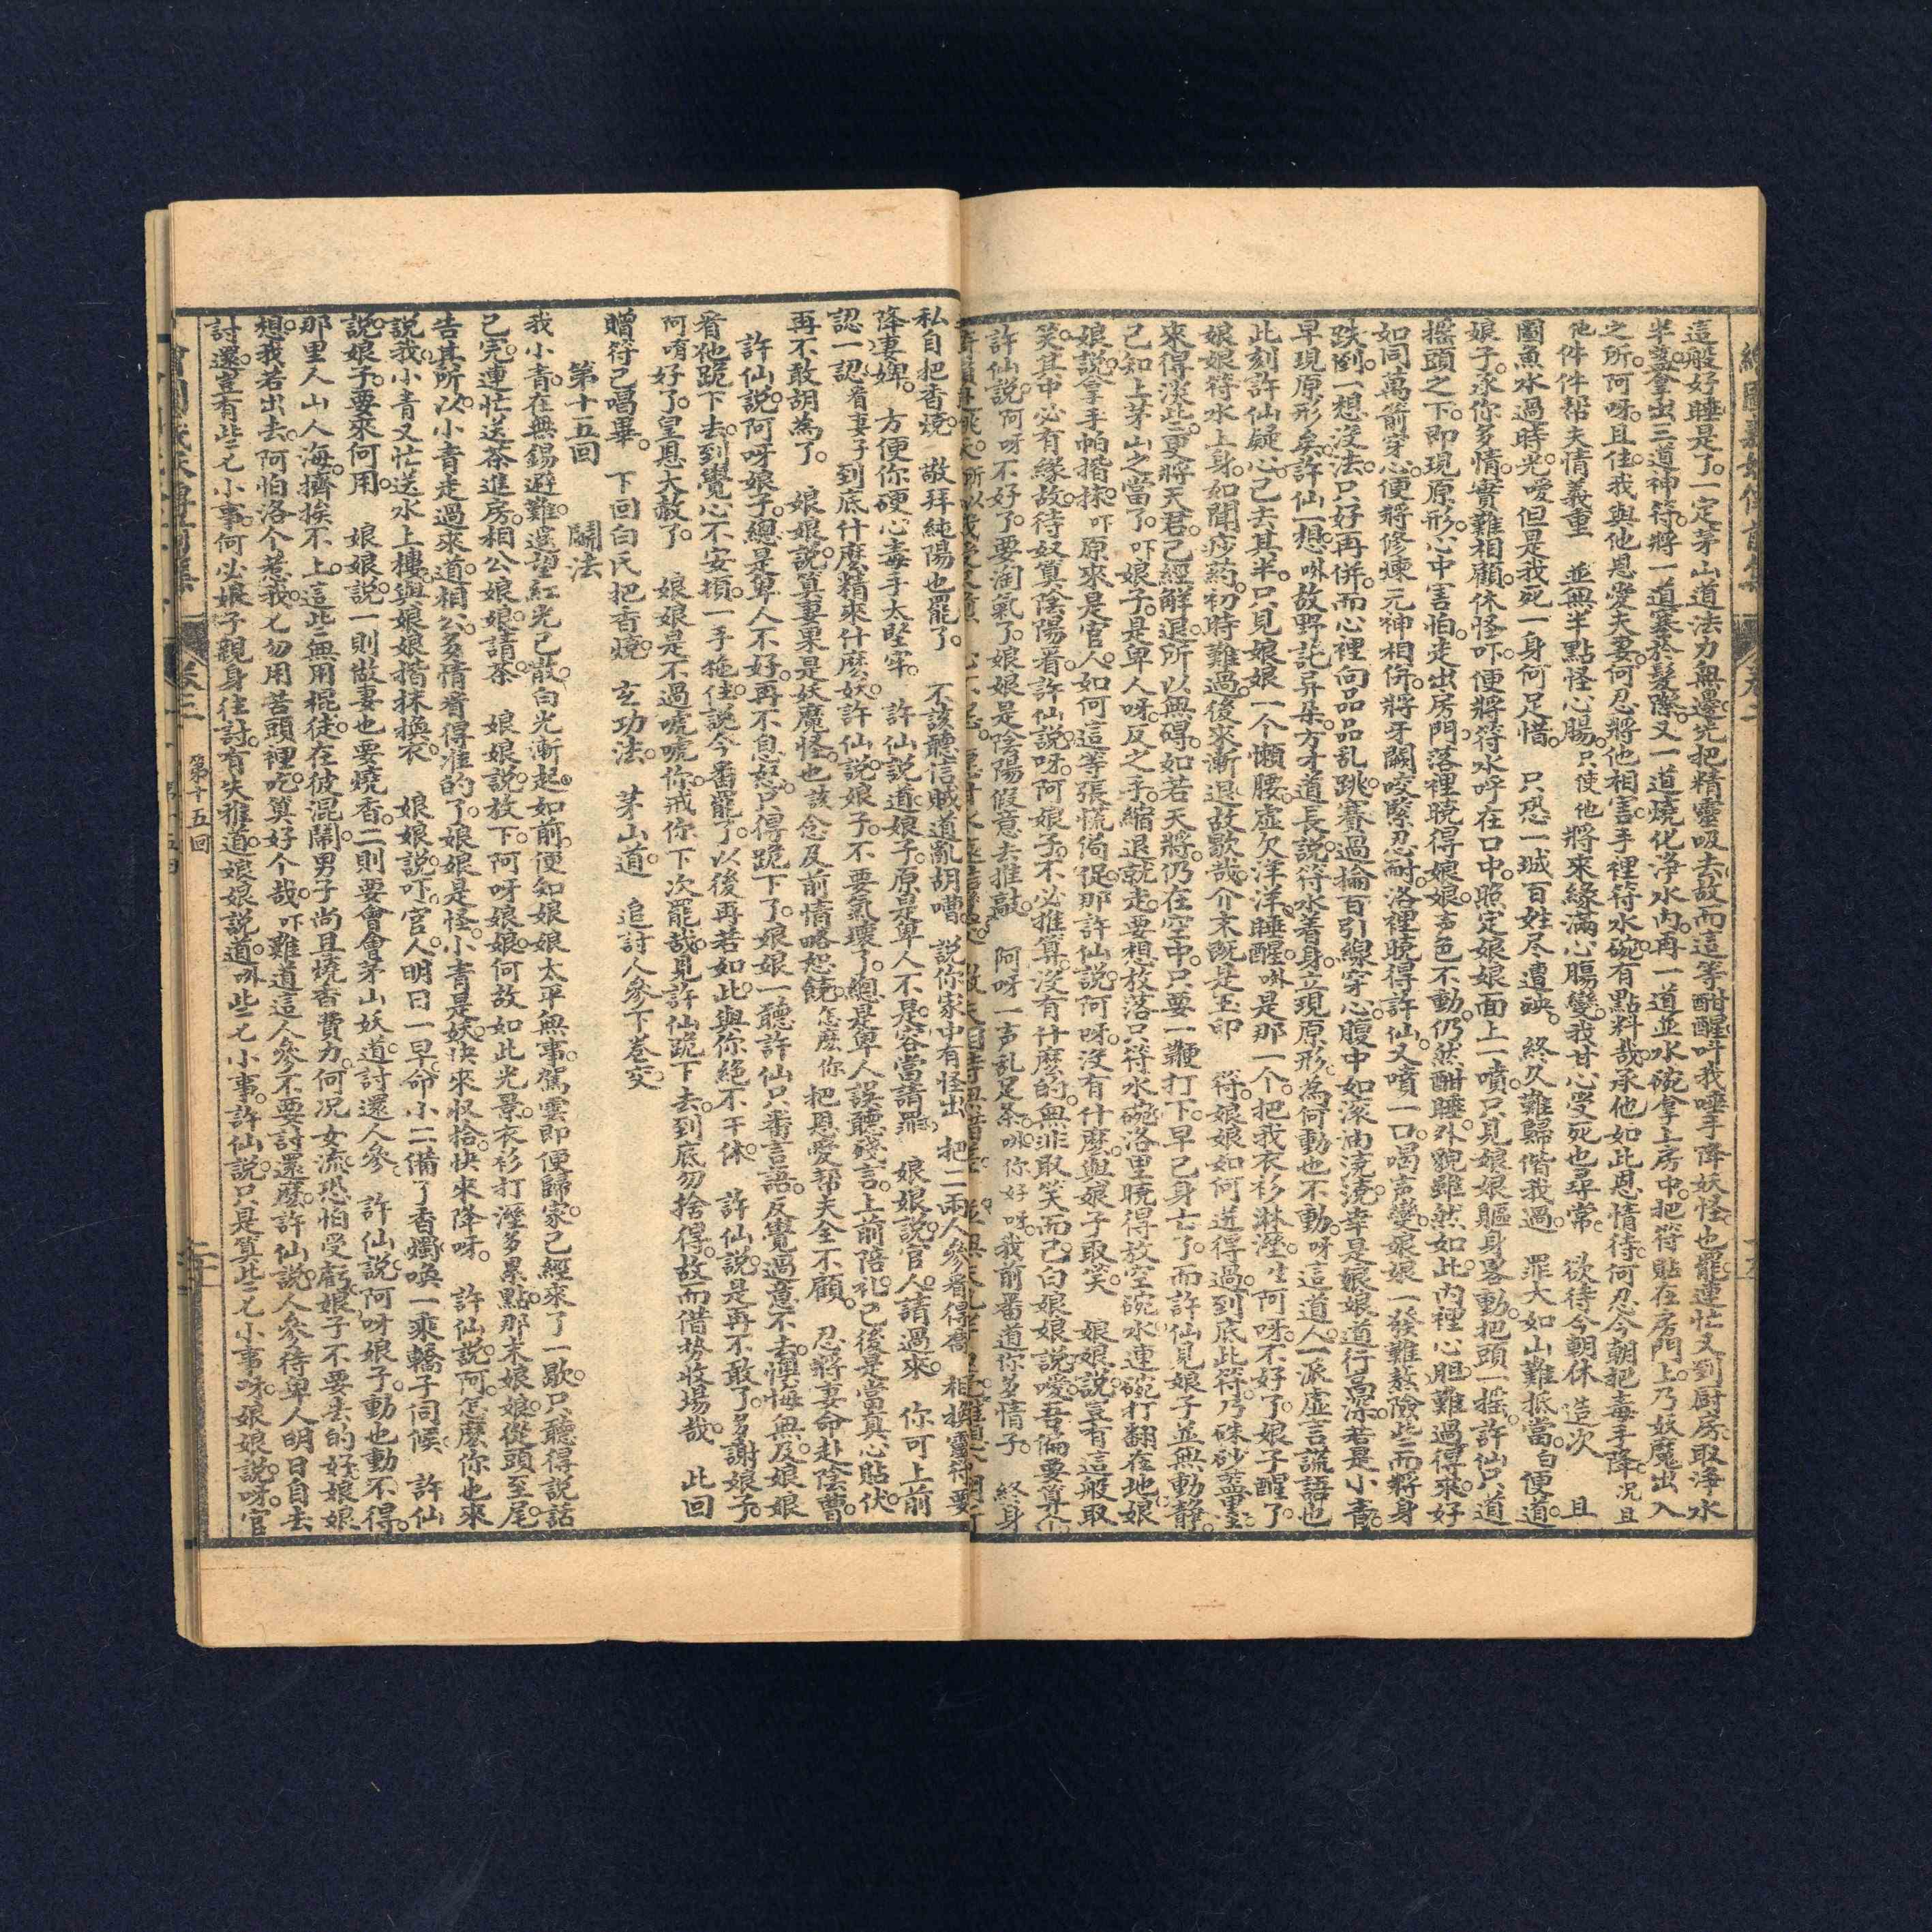 這般好睡是了一定茅山道法力無邊先把精靈吸去故而這等酣醒吓我唾手降妖怪也罷連忙又到厨房取淨水
半盞拿出三道神符將一道塞於髮際又一道燒化淨水內再一道並水碗拿上房中把符貼在房門上乃妖魔出入
之所阿呀且住我與他恩愛夫妻何忍將他相害手裡符水碗有點料哉承他如此恩情待何忍今朝把毒手降况且
他件件帮夫情義重 並無半點怪心腸只使他將來緣滿心腸變我甘心受死也尋常 欲待今朝休造次 且
圖魚水過時光嗳但是我死一身何足惜 只恐一城百姓尽遭殃 終久難歸偕我過 罪大如山難抵當白便道
娘子承你多情實難相顧休怪吓便將符水呼在口中照定娘娘面上一噴只見娘娘軀身畧動把頭一摇許仙只道
摇頭之下即現原形心中害怕走出房門落裡曉得娘娘声色不動仍然酣睡外貌雖然如此內裡心胆難過得來好
如同萬箭穿心便將修煉元神相併將牙關咬緊忍耐洛裡曉得許仙又噴一口喝声變娘娘一發難熬險些而將身
跌倒一想沒法只好再併而心裡向品品乱跳賽過掄百引線穿心腹中如滾油澆澆幸是娘娘道行高深若是小青
早現原形矣許仙一想咻故野託异朵方才道長説符水着身立現原形為何動也不動呀這道人一派虛言謊語也
此刻許仙疑心己去其半只見娘娘一个懶腰虛欠洋洋睡醒咻是那一个把我衣衫淋溼生阿呀不好了娘子醒了
娘娘符水上身如聞痧葯初時難過後來漸退故歇哉介末既是玉印 符娘娘如何逆得過到底此符乃硃砂藍墨
來得淡些更將天君己經解退所以無碍如若天將仍在空中只要一鞭打下早己身亡了而許仙見娘子並無動靜
己知上茅山之當了吓娘子是卑人呀反之手縮退就走要想放落只符水碗洛里曉得放空碗水連碗打翻在地娘
娘說拿手帕揩抹吓原來是官人如何這等張慌侷促那許仙說阿呀沒有什麼與娘子取笑 娘娘說豈有這般取
笑其中必有緣故待奴算陰陽看許仙說呀阿娘子不必推算沒有什麼的無非取笑而己白娘娘說嗳吾倆要算
許仙說阿呀不好了要淘氣了娘娘是陰陽假意去推敲 阿呀一声乱足茶啡你好呀我前番道你多情子 終身
私自把香燒 敬拜純陽也罷了 不該聽信賊道亂胡嘈 說你家中有怪出 把二兩人參看得喬 相換靈符要
降妻婢 方便你硬心毒手太堅牢 許仙說道娘子原是卑人不是容當請罪 娘娘說官人請過來 你可上前
認一認看妻子到底什麼精來什麼妖許仙說娘子不要氣壞了總是卑人誤聽殘言上前陪礼己後是當真心貼伏
再不敢胡為了 娘娘說算妻果是妖魔怪也該念及前情略恕饒怎麽你把恩愛帮夫全不顧 忍將妻命赴陰曹
許仙說阿呀娘子總是卑人不好再不息怒只得跪下了娘娘一聽許仙只番言語反覺過意不去懊悔無及娘娘
看他跪下去到覺心不安損一手拖住說今番罷了以後再若如此與你絶不干休 許仙説是再不敢了多謝娘子
阿唷好了皇恩大赦了 娘娘是不過唬唬你戒你下次罷哉見許仙跪下去到底勿捨得故而借势收場哉 此回
贈符己唱畢 下回白氏把香燒 玄功法 茅山道 追討人參下卷交
第十五回 鬬法
我小青在無錫避難遠望紅光己散白光漸起如前便知娘娘太平無事駕雲即便歸家己經來了一歇只聽得說話
己完連忙送茶進房相公娘娘請茶 娘娘說放下阿呀娘娘何故如此光景衣衫打溼多累點那末娘娘從頭至尾
告其所以小青走過來道相公多情看得准的了娘娘是怪小青是妖快來収拾快來降呀 許仙說阿怎麼你也來
說我小青又忙送水上樓與娘娘揩抹換衣 娘娘說吓官人明日一早命小二備了香燭喚一乘轎子伺候 許仙
說娘子要來何用 娘娘說一則做妻也要燒香二則要會會茅山妖道討還人參 許仙說阿呀娘子動也動不得
那里人山人海擠挨不上這些無用棍徒在彼混鬧男子尚且燒香費力何况女流恐怕受虧娘子不要去的好娘娘
想我若出去阿怕洛个惹我乜勿用苦頭裡吃算好个哉吓難道這人參不要討還麼許仙說人參待卑人明日自去
討還豈有些乜小事何必娘子親身往討有失雅道娘娘說道咻些乜小事許仙說只是算些乜小事呀娘娘說呀官
卷三 第十五回